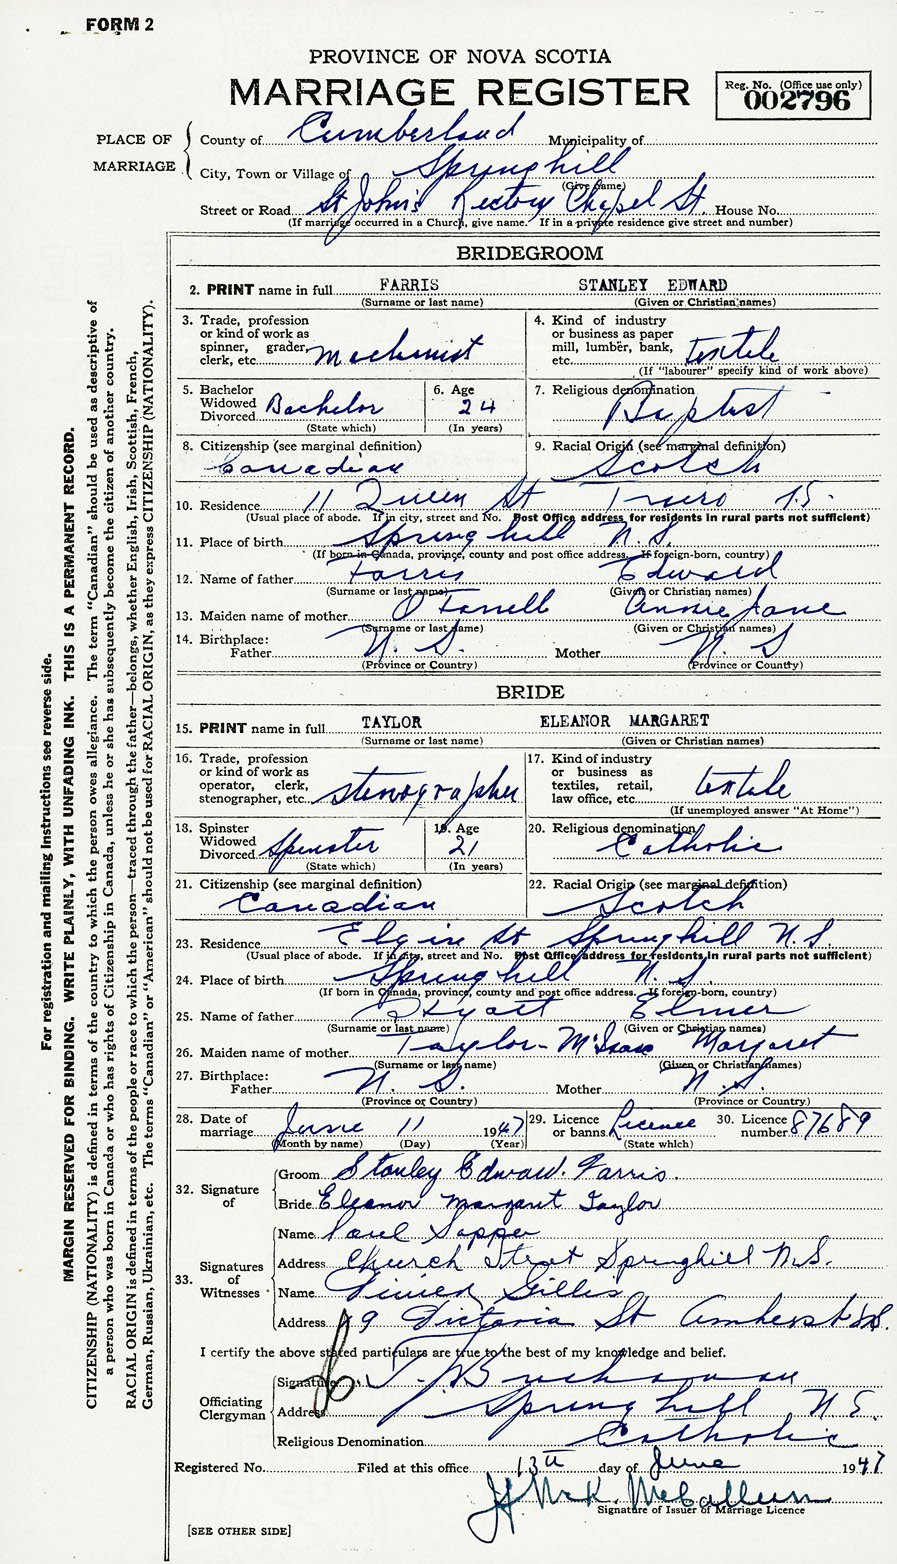 FORM 2
PROVINCE OF NOVA SCOTIA
MARRIAGE REGISTER
Reg. No. (Office use only)
002796
PLACE OF MARRIAGE
County of Cumberland Municipality of
City, Town or Village of Springhill
(Give name)
Street or Road St John's Rectory Chapel St. House No.
(If marriage occurred in a Church, give name. If in a private residence give street and number)
BRIDEGROOM
2. PRINT name in full FARRIS STANLEY EDWARD
(Surname or last name) (Given or Christian names)
3. Trade, profession or kind of work as spinner, grader, clerk, etc. Machinist
4. Kind of industry or business as paper mill, lumber, bank, etc. textile
(If "labourer" specify kind of work above)
5. Bachelor Widowed Divorced Bachelor
(State which)
6. Age 24
(In years)
7. Religious denomination Baptist
8. Citizenship (see marginal definition) Canadian
9. Racial Origin (see marginal definition) Scotch
10. Residence 11 Queen St Truro N.S.
(Usual place of abode. If in city, street and No. Post Office address for residents in rural parts not sufficient)
11. Place of birth Springhill N.S.
(If born in Canada, province, county and post office address. If foreign-born, country)
12. Name of father Farris Edward
(Surname or last name) (Given or Christian names)
13. Maiden name of mother O'Farrell Annie Jane
(Surname or last name) (Given or Christian names)
14. Birthplace: Father N. S. Mother N. S
(Province or Country) (Province or Country)
BRIDE
15. PRINT name in full TAYLOR ELEANOR MARGARET
(Surname or last name) (Given or Christian names)
16. Trade, profession or kind of work as operator, clerk, stenographer, etc. stenographer
17. Kind of industry or business as textiles, retail, law office, etc. textile
(If unemployed answer "At Home")
18. Spinster Widowed Divorced Spinster
(State which)
19. Age 21
(In years)
20. Religious denomination Catholic
21. Citizenship (see marginal definition) Canadian
22. Racial Origin (see marginal definition) Scotch
23. Residence Elgin St Springhill N.S.
(Usual place of abode. If in city, street and No. Post Office address for residents in rural parts not sufficient)
24. Place of birth Springhill N.S.
(If born in Canada, province, county and post office address. If foreign-born, country)
25. Name of father Elmer
(Surname or last name) (Given or Christian names)
26. Maiden name of mother Taylor - McIsaac Margaret
(Surname or last name) (Given or Christian names)
27. Birthplace: Father N. S. Mother N.S.
(Province or Country) (Province or Country)
28. Date of marriage June 11 1947
(Month by name) (Day) (Year)
29. Licence or banns Licence
(State which)
30. Licence number 87689
32. Signature of
Groom Stanley Edward Farris.
Bride Eleanor Margaret Taylor
33. Signatures of Witnesses
Name Paul
Address Church Street Springhill N.S.
Name Gillis
Address 19 Victoria St Amherst N.S.
I certify the above stated particulars are true to the best of my knowledge and belief.
Officiating Clergyman
Signature Buchanan
Address Springhill N S.
Religious Denomination Catholic
Registered No. Filed at this office 13th day of June 1947
McK. McCallum
Signature of Issuer of Marriage Licence
[SEE OTHER SIDE]
For registration and mailing instructions see reverse side.
MARGIN RESERVED FOR BINDING. WRITE PLAINLY, WITH UNFADING INK. THIS IS A PERMANENT RECORD.
CITIZENSHIP (NATIONALITY) is defined in terms of the country to which the person owes allegiance. The term "Canadian" should be used as descriptive of
a person who was born in Canada or who has rights of Citizenship in Canada, unless he or she has subsequently become the citizen of another country.
RACIAL ORIGIN is defined in terms of the people or race to which the person—traced through the father—belongs, whether English, Irish, Scottish, French,
German, Russian, Ukrainian, etc. The terms "Canadian" or "American" should not be used for RACIAL ORIGIN, as they express CITIZENSHIP (NATIONALITY).